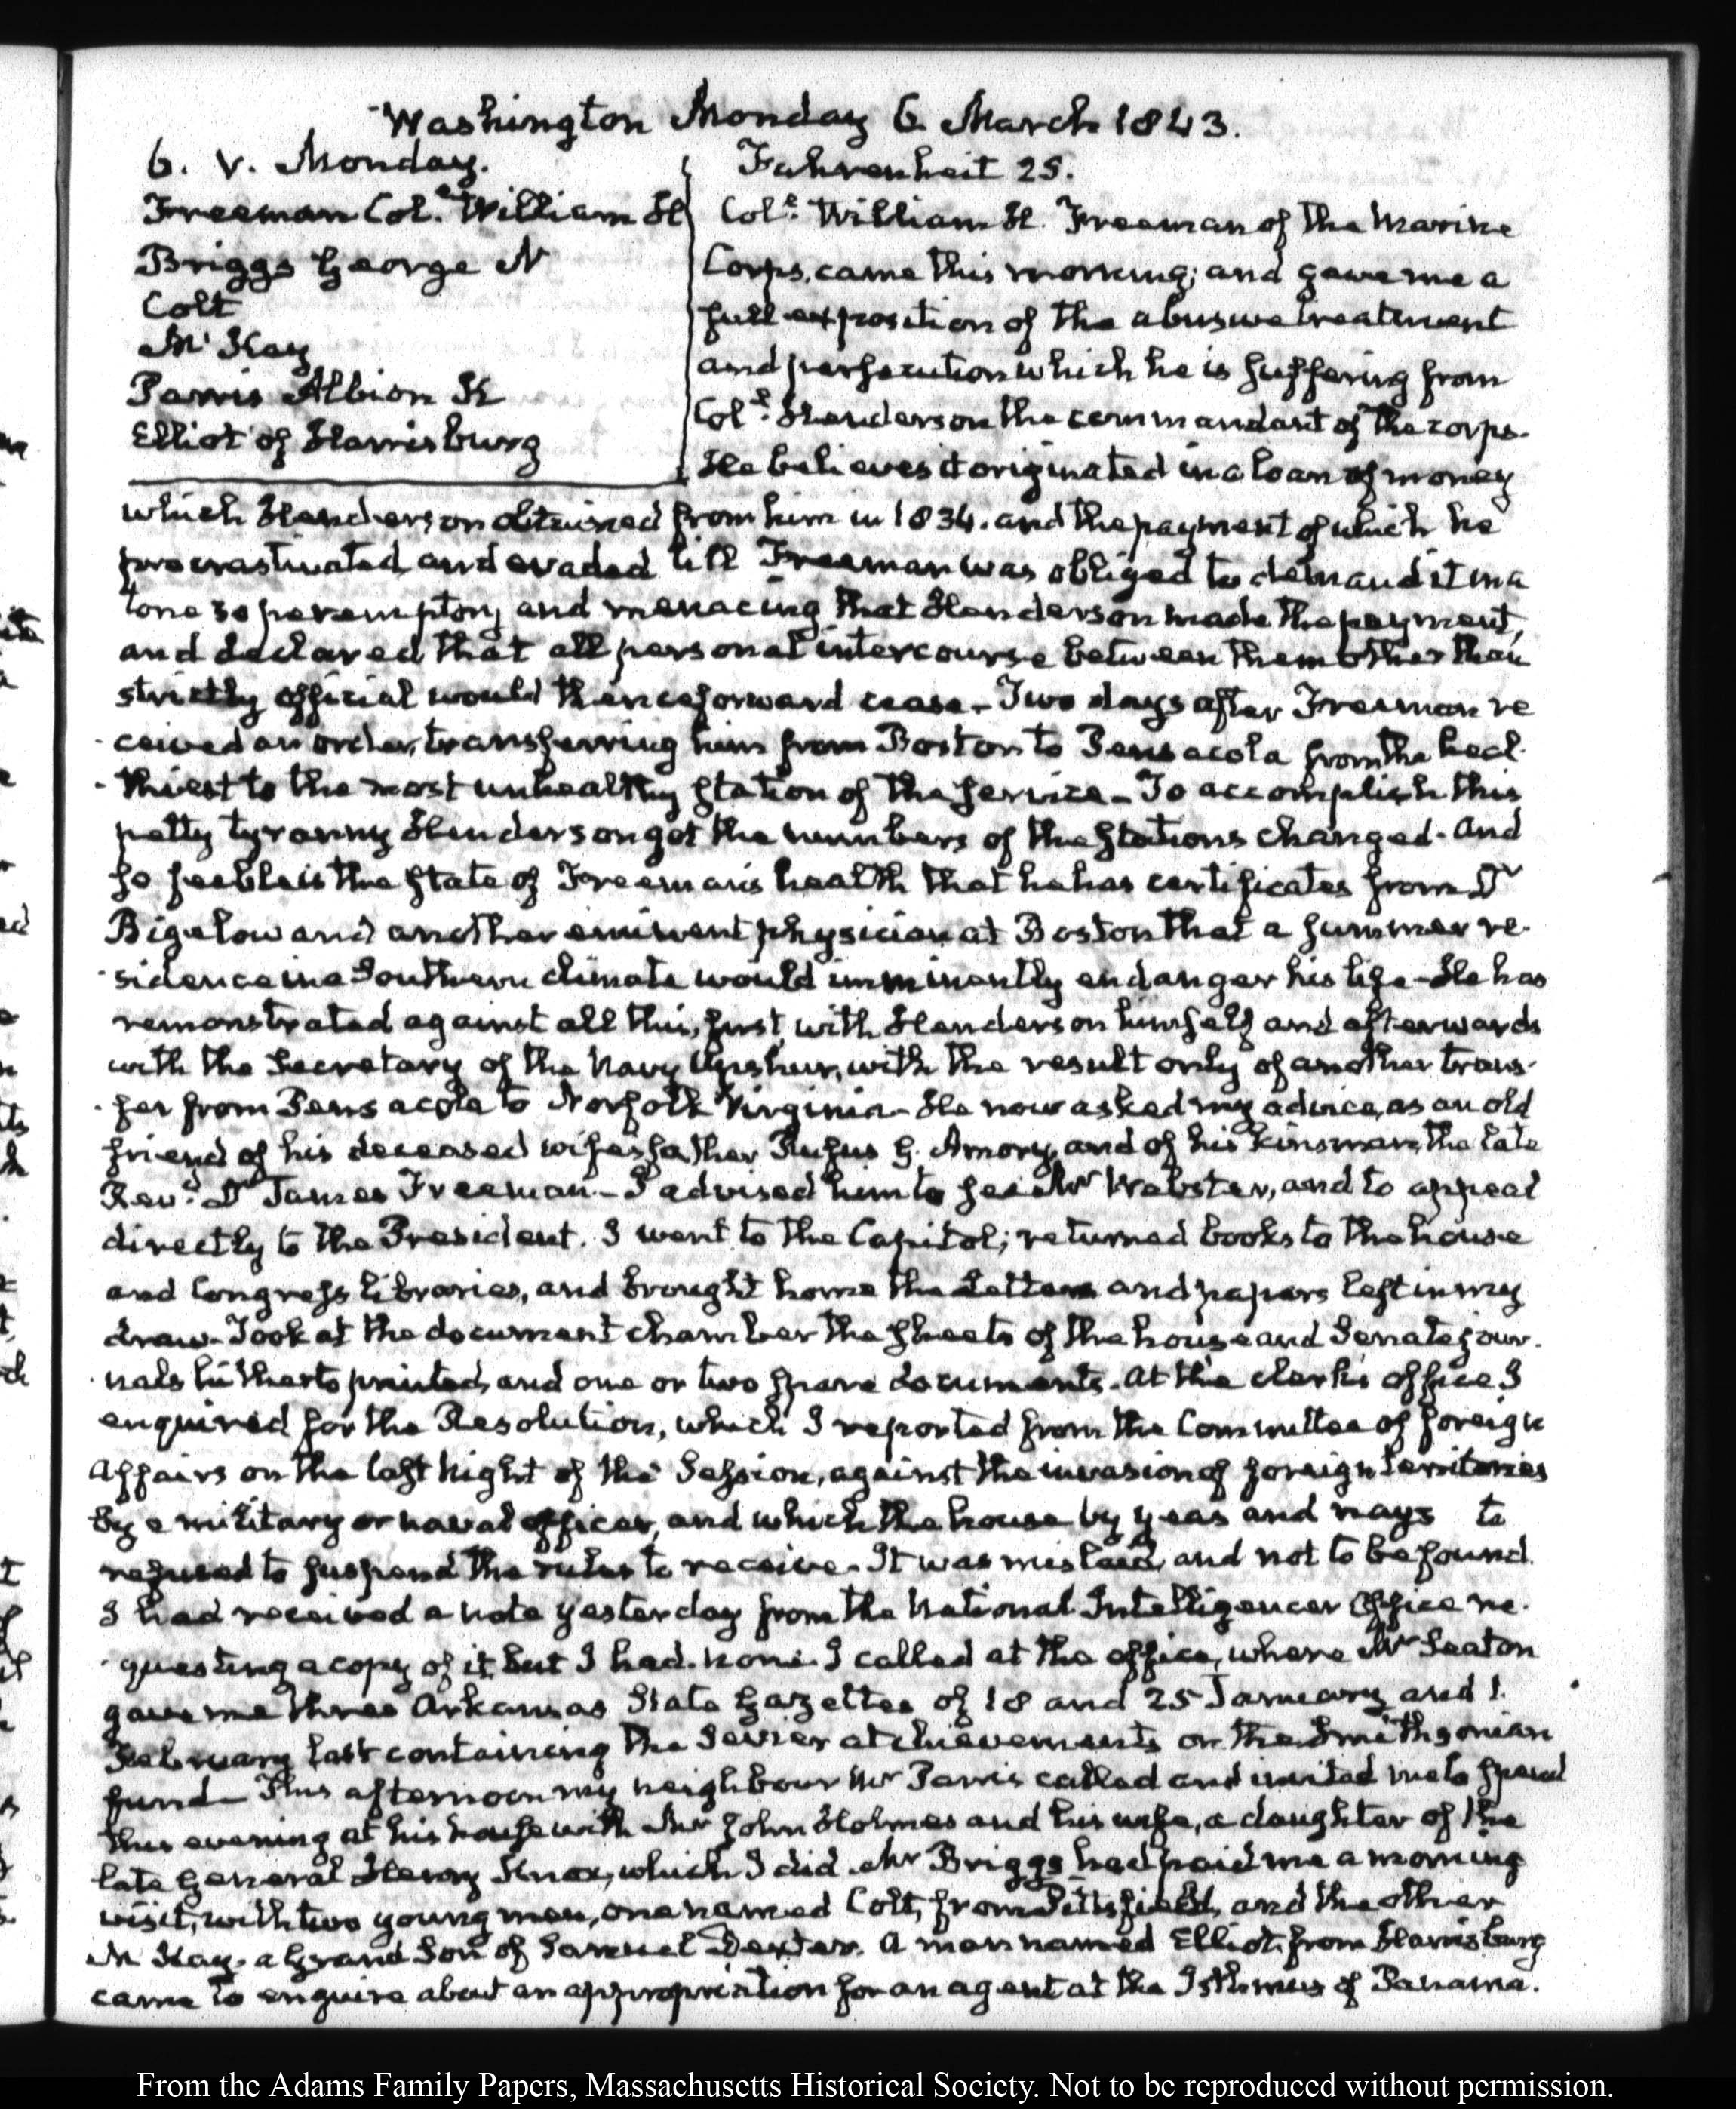 Washington Monday 6. March 1843.
6. V. Monday.
Freeman Col.l William H
Briggs George N
Colt
McKay
Parris Albion K
Elliot of Harrisburg
Fahrenheit 25.
Col.l William H. Freeman of the Marine
Corps, came this morning; and gave me a
full exposition of the abusive treatment
and persecution which he is suffering from
Col.l Henderson the commandant of the corps.
He believes it originated in a loan of money
which Henderson obtained from him in 1834. and the payment of which he
procrastinated, and evaded till Freeman was obliged to demand it in a
tone so peremptory and menacing that Henderson made the payment,
and declared that all personal intercourse between them other than
strictly official would thenceforward cease. Two days after Freeman re
-ceived an order, transferring him from Boston to Pensacola from the heal-
-thiest to the most unhealthy station of the service. To accomplish this
petty tyranny Henderson got the numbers of the stations changed. And
so feeble is the state of Freeman's health that he has certificates from Dr
Bigelow and another eminent physician at Boston that a summer re-
-sidence in a Southern climate would imminently endanger his life. He has
remonstrated against all this, first, with Henderson himself and afterwards
with the Secretary of the Navy Upshur, with the result only of another trans-
-fer from Pensacola to Norfolk Virginia. He now asked my advice, as an old
friend of his deceased wife's father Rufus G. Amory, and of his kinsman, the late
Rev.d Dr James Freeman. I advised him to see Mr Webster, and to appeal
directly to the President. I went to the Capitol; returned books to the house
and Congress libraries, and brought home the letters and papers left in my
draw. Took at the document chamber the sheets of the house and Senate jour-
-nals hitherto printed, and one or two spare documents. At the clerk's office I
enquired for the Resolution, which I reported from the Committee of foreign
Affairs on the last night of the Session, against the invasion of foreign territories
by a military or naval officer, and which the house by yeas and nays to
refused to suspend the rules to receive. It was mislaid, and not to be found.
I had received a note yesterday from the National Intelligencer Office re-
-questing a copy of it, but I had none. I called at the office, where Mr Seaton
gave me three Arkansas State Gazettes of 18 and 25 January and 1.
February last containing the Sevier atchievements on the Smithsonian
fund. This afternoon my neighbour Mr Parris called and invited me to spend
this evening at his house with Mr John Holmes and his wife, a daughter of the
late General Henry Knox, which I did. Mr Briggs had paid me a morning
visit, with two young men, one named Colt, from Pittsfield, and the other
McKay. a Grand Son of Samuel Dexter. A man named Elliot from Harrisburg
came to enquire about an appropriation for an agent at the Isthmus of Panama.
From the Adams Family Papers, Massachusetts Historical Society. Not to be reproduced without permission.